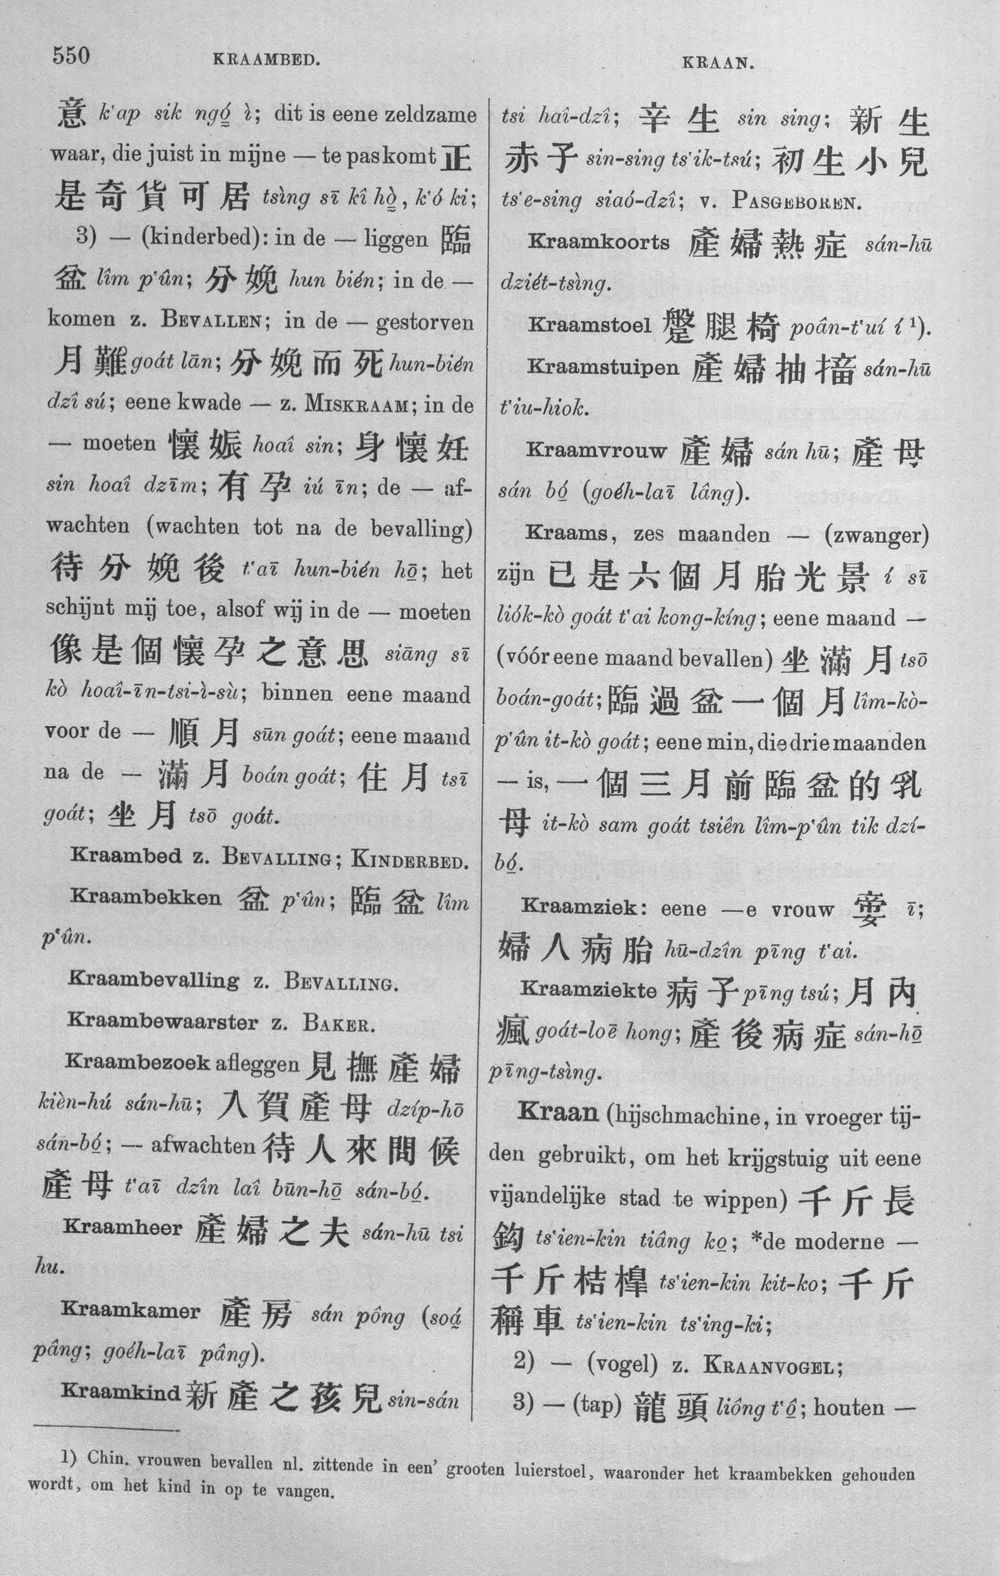 550
KRAAMBED.
KRAAN.
意 k‘ap sik ngó̱ ì; dit is eene zeldzame
waar, die juist in mijne — te pas komt 正
是奇貨可居 tsìng sī kî hò̱, k‘ó ki;
3) — (kinderbed): in de — liggen 臨
盆 lîm p‘ûn; 分娩 hun bién; in de —
komen z. BEVALLEN; in de — gestorven
月難 goát lān; 分娩而死 hun-bién
dzî sú; eene kwade — z. MISKRAAM; in de
— moeten 懷娠 hoaî sin; 身懷妊
sin hoaî dzīm; 有孕 iú īn; de — af-
wachten (wachten tot na de bevalling)
待分娩後 t‘aī hun-bién hō̱; het
schijnt mij toe, alsof wij in de — moeten
像是個懷孕之意思 siāng sī
kò hoaî-īn-tsi-ì-sù; binnen eene maand
voor de — 順月 sūn goát; eene maand
na de — 滿月 boán goát; 住月 tsī
goát; 坐月 tsō goát.
Kraambed z. BEVALLING; KINDERBED.
Kraambekken 盆 p‘ûn; 臨盆 lîm
p‘ûn.
Kraambevalling z. BEVALLING.
Kraambewaarster z. BAKER.
Kraambezoek afleggen 見撫產婦
kièn-hú sán-hū; 入賀產母 dzíp-hō
sán-bó̱; — afwachten 待人來問候
產母 t‘aī dzîn laî būn-hō̱ sán-bó̱.
Kraamheer 產婦之夫 sán-hū tsi
hu.
Kraamkamer 產房 sán pông (soá̱
pâng; goéh-laī pâng).
Kraamkind 新產之孩兒 sin-sán
tsi haî-dzî; 辛生 sin sing; 新生
赤子 sin-sing ts‘ik-tsú; 初生小兒
ts‘e-sing siaó-dzî; v. PASGEBOREN.
Kraamkoorts 產婦熱症 sán-hū
dziét-tsìng.
Kraamstoel 盤腿椅 poân-t‘uí í ¹).
Kraamstuipen 產婦抽搐 sán-hū
t‘iu-hiok.
Kraamvrouw 產婦 sán hū; 產母
sán bó̱ (goéh-laī lâng).
Kraams, zes maanden — (zwanger)
zijn 已是六個月胎光景 í sī
liók-kò goát t‘ai kong-kíng; eene maand —
(vóór eene maand bevallen) 坐滿月 tsō
boán-goát; 臨過盆一個月 lîm-kò-
p‘ûn it-kò goát; eene min, die drie maanden
— is, 一個三月前臨盆的乳
母 it-kò sam goát tsiên lîm-p‘ûn tik dzí-
bó̱.
Kraamziek: eene —e vrouw ī;
婦人病胎 hū-dzîn pīng t‘ai.
Kraamziekte 病子 pīng tsú; 月內
瘋 goát-loē hong; 產後病症 sán-hō̱
pīng-tsìng.
Kraan (hijschmachine, in vroeger tij-
den gebruikt, om het krijgstuig uit eene
vijandelijke stad te wippen) 千斤長
鈎 ts‘ien-kin tiâng ko̱; *de moderne —
千斤桔槹 ts‘ien-kin kit-ko; 千斤
稱車 ts‘ien-kin ts‘ing-ki;
2) — (vogel) z. KRAANVOGEL;
3) — (tap) 龍頭 liông t‘ô̱; houten —
1) Chin. vrouwen bevallen nl. zittende in een’ grooten luierstoel, waaronder het kraambekken gehouden
wordt, om het kind in op te vangen.